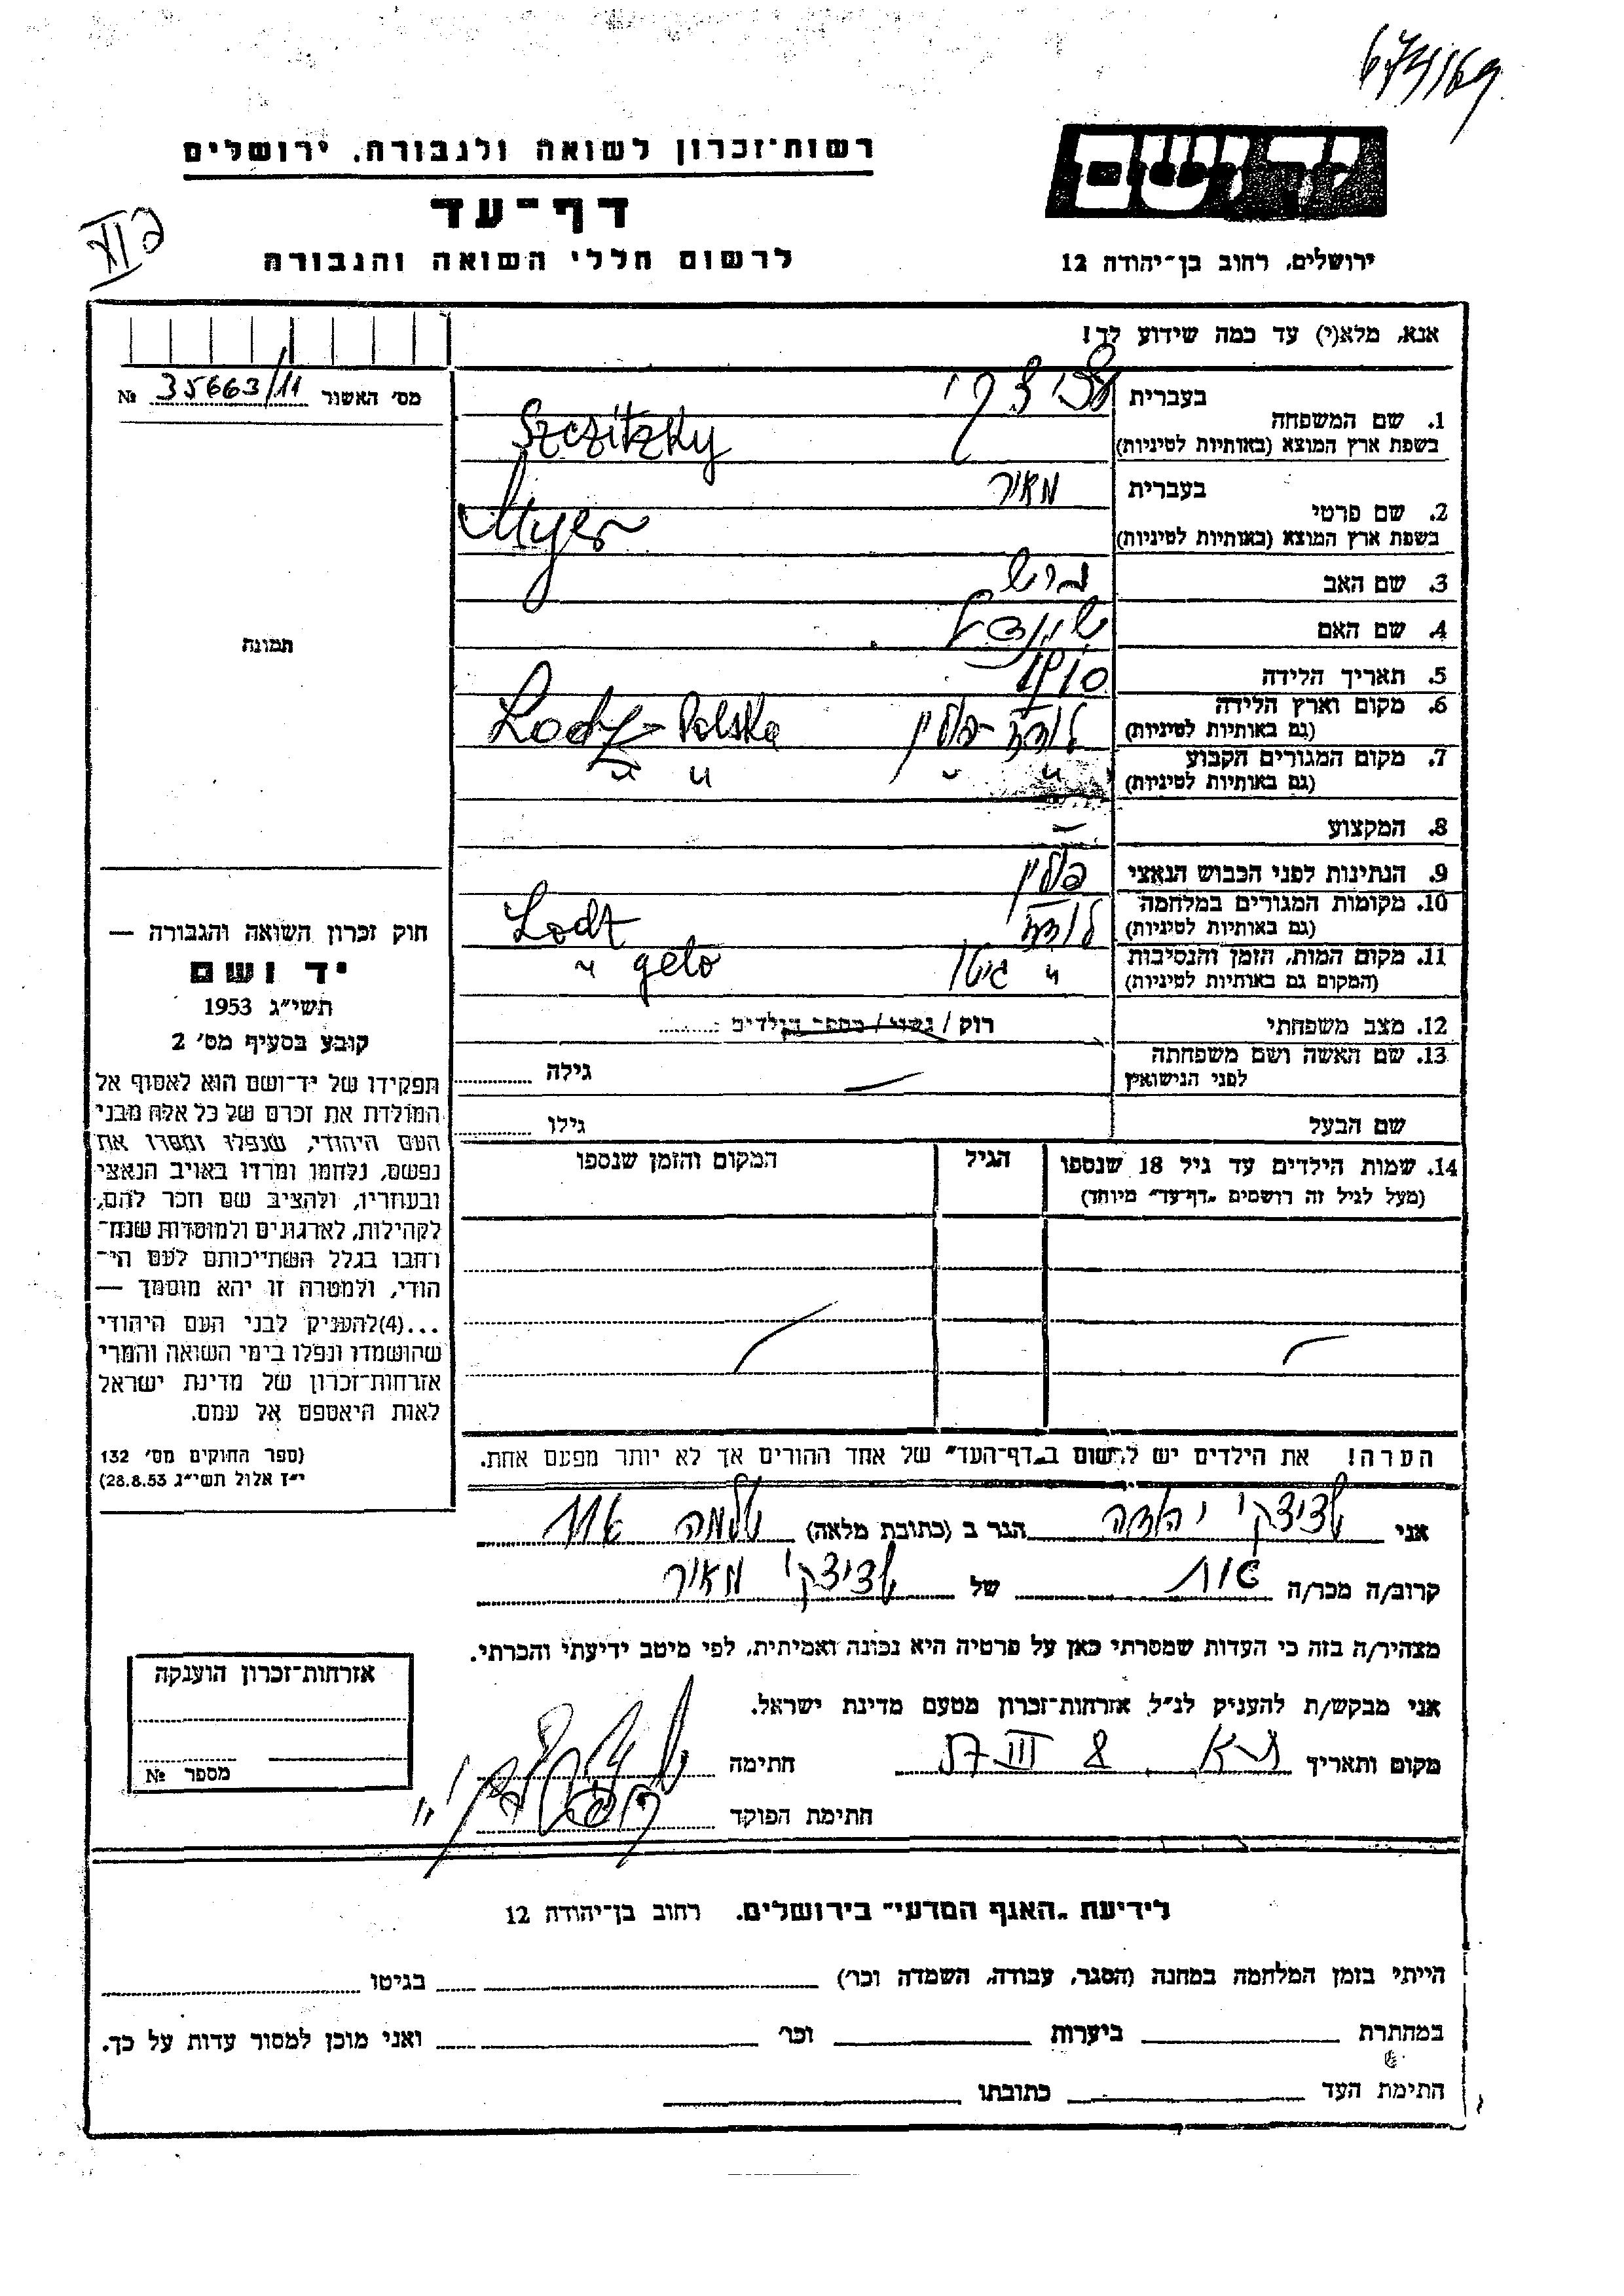 רשות־זכרון לשואה ולגבורה, ירושלים
דף־עד
לרשום חללי השואה והגבורה
יד ושם
ירושלים, רחוב בן־יהודה 12
אנא, מלא(י) עד כמה שידוע לך!
מס׳ האשור 35663/11 №
1. שם המשפחה
בעברית
בשפת ארץ המוצא (באותיות לטיניות) Szczitzky
2. שם פרטי
בעברית מאיר
בשפת ארץ המוצא (באותיות לטיניות) Myer
3. שם האב בריש
4. שם האם
5. תאריך הלידה 1910
6. מקום וארץ הלידה
(גם באותיות לטיניות) לודז - פולין Lodz - Polska
7. מקום המגורים הקבוע
(גם באותיות לטיניות) " " " "
8. המקצוע —
9. הנתינות לפני הכבוש הנאצי פולין
10. מקומות המגורים במלחמה
(גם באותיות לטיניות) לודז Lodz
11. מקום המות, הזמן והנסיבות
(המקום גם באותיות לטיניות) " גיטו " geto
12. מצב משפחתי רוק / נשוי / מספר הילדים :
13. שם האשה ושם משפחתה
לפני הנישואין גילה
שם הבעל גילו
14. שמות הילדים עד גיל 18 שנספו
(מעל לגיל זה רושמים „דף־עד״ מיוחד)
הגיל
המקום והזמן שנספו
הערה! את הילדים יש לרשום ב„דף־העד״ של אחד ההורים אך לא יותר מפעם אחת.
תמונה
חוק זכרון השואה והגבורה —
יד ושם
תשי״ג 1953
קובע בסעיף מס׳ 2
תפקידו של יד־ושם הוא לאסוף אל
המולדת את זכרם של כל אלה מבני
העם היהודי, שנפלו ומסרו את
נפשם, נלחמו ומרדו באויב הנאצי
ובעוזריו, ולהציב שם וזכר להם,
לקהילות, לארגונים ולמוסדות שנח־
רחבו בגלל השתייכותם לעם הי־
הודי, ולמטרה זו יהא מוסמך —
...(4)להעניק לבני העם היהודי
שהושמדו ונפלו בימי השואה והמרי
אזרחות־זכרון של מדינת ישראל
לאות היאספם אל עמם.
(ספר החוקים מס׳ 132
י״ז אלול תשי״ג 28.8.53)
אני שציצקי יהודה הגר ב (כתובת מלאה)
קרוב/ה מכר/ה של שציצקי מאיר
מצהיר/ה בזה כי העדות שמסרתי כאן על פרטיה היא נכונה ואמיתית, לפי מיטב ידיעתי והכרתי.
אני מבקש/ת להעניק לנ״ל אזרחות־זכרון מטעם מדינת ישראל.
מקום ותאריך 8 III 57 חתימה
חתימת הפוקד
אזרחות־זכרון הוענקה
מספר №
לידיעת „האגף המדעי״ בירושלים. רחוב בן־יהודה 12
הייתי בזמן המלחמה במחנה (הסגר, עבודה, השמדה וכו׳) בגיטו
במחתרת ביערות וכו׳ ואני מוכן למסור עדות על כך.
חתימת העד כתובתו